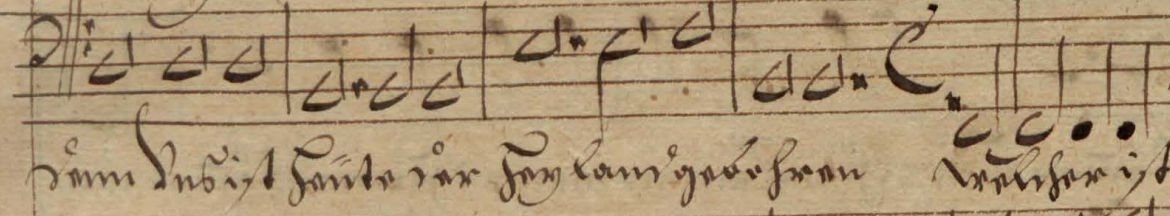 denn Vns ist heüte der Heyland gebohren welcher ist